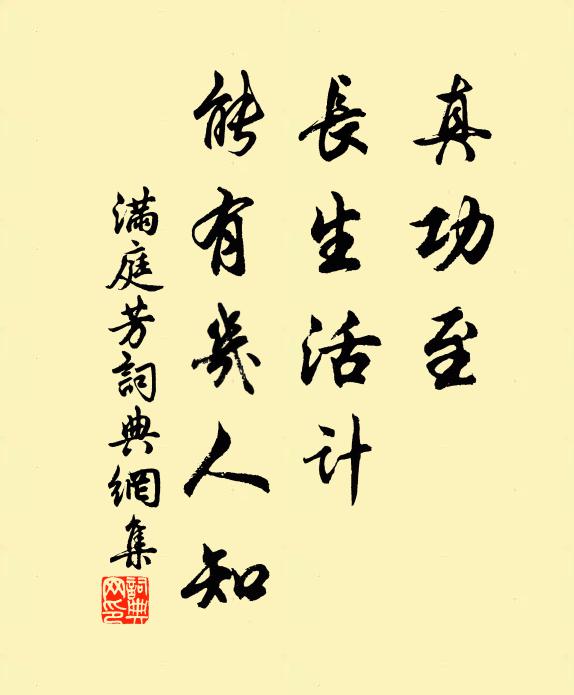 真功至
長生活計
能有幾人知
滿庭芳詞典網集
詞典網印